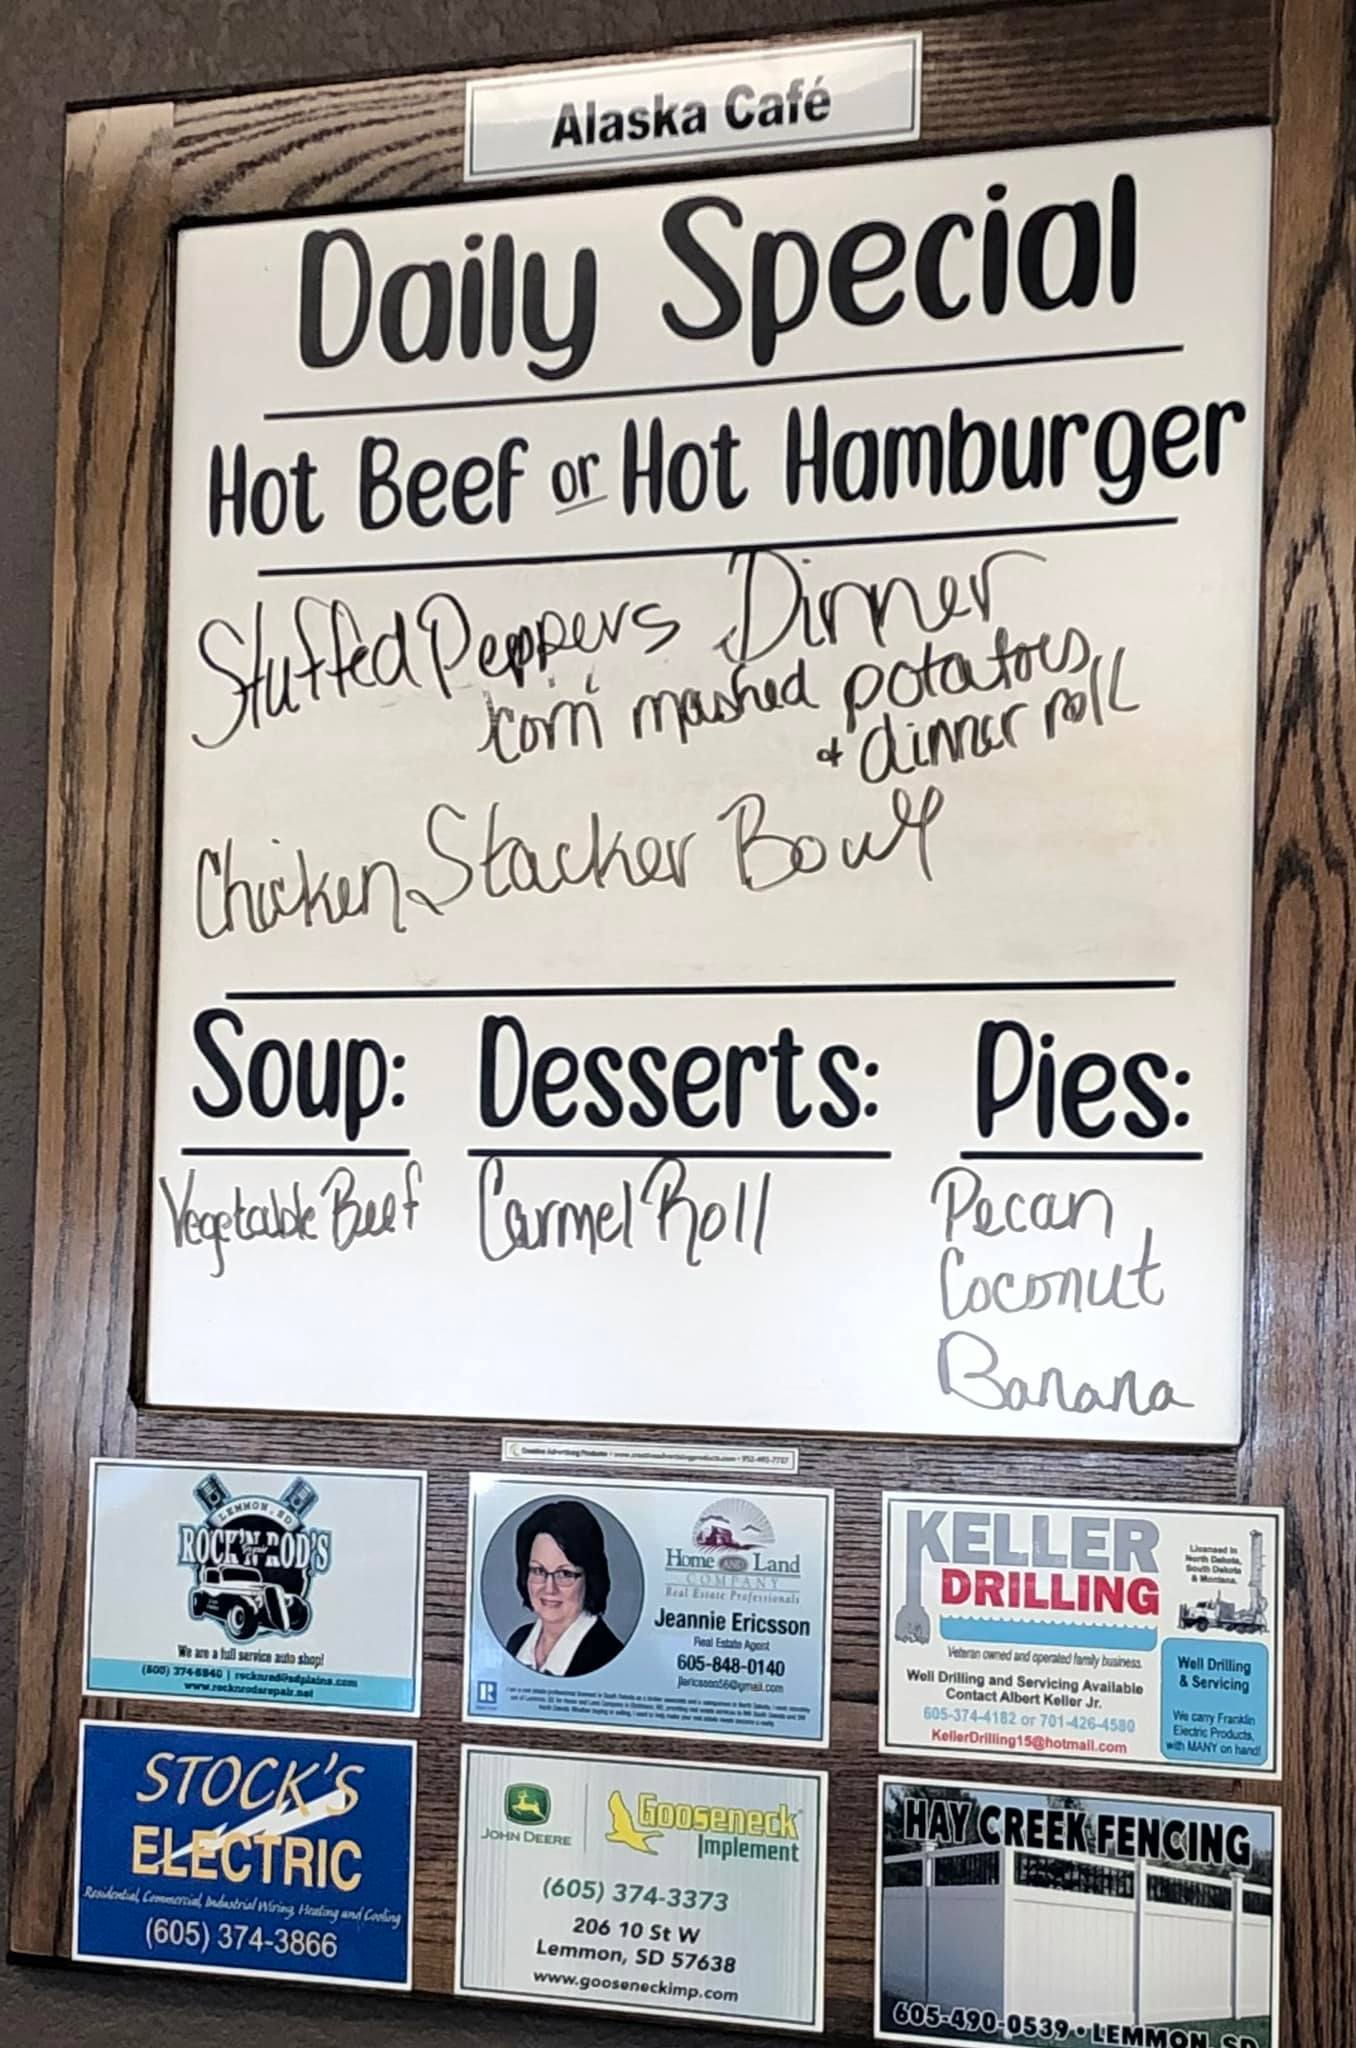 Alaska Café
Daily Special
Hot Beef or Hot Hamburger
Stuffed Peppers Dinner
corn mashed potatoes
+ dinner roll
Chicken Stacker Bowl
Soup: Desserts: Pies:
Vegetable Beef Carmel Roll Pecan
Coconut
Banana
Creative Advertising Products • www.creativeadvertisingproducts.com • 952-492-7787
LEMMON, SD
ROCK'N ROD'S
Repair
We are a full service auto shop!
(605) 374-5840 | rocknrod@sdplains.com
www.rocknrodsrepair.net
Home AND Land
COMPANY
Real Estate Professionals
Jeannie Ericsson
Real Estate Agent
605-848-0140
jlericsson56@gmail.com
KELLER
DRILLING
Licensed in
North Dakota,
South Dakota
& Montana.
Veteran owned and operated family business.
Well Drilling and Servicing Available
Contact Albert Keller Jr.
605-374-4182 or 701-426-4580
KellerDrilling15@hotmail.com
Well Drilling
& Servicing
We carry Franklin
Electric Products,
with MANY on hand!
STOCK'S
ELECTRIC
Residential, Commercial, Industrial Wiring, Heating and Cooling
(605) 374-3866
JOHN DEERE
Gooseneck
Implement
(605) 374-3373
206 10 St W
Lemmon, SD 57638
www.gooseneckimp.com
HAY CREEK FENCING
605-490-0539 • LEMMON, SD